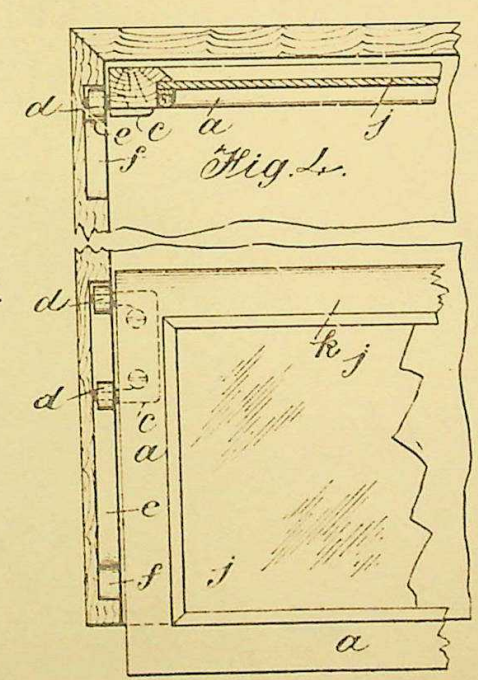 d
e c a j
f
Fig. 4.
d
k j
d
c
a
e
f j
a